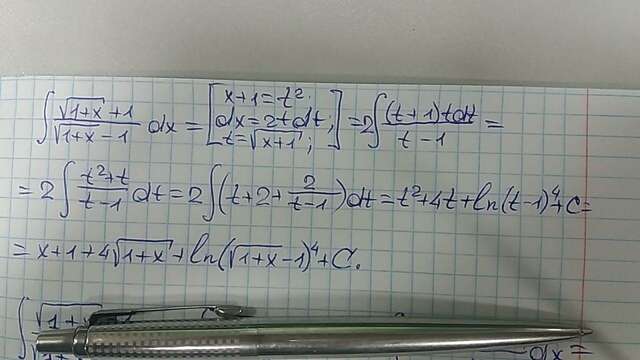 ∫ (√(1+x) + 1)/(√(1+x) - 1) dx = [x+1=t²; dx=2tdt; t=√(x+1);] = 2∫ (t+1)tdt/(t-1) =
= 2∫ (t²+t)/(t-1) dt = 2∫ (t+2+2/(t-1))dt = t²+4t+ln(t-1)⁴+C=
= x+1+4√(1+x)+ln(√(1+x)-1)⁴+C.